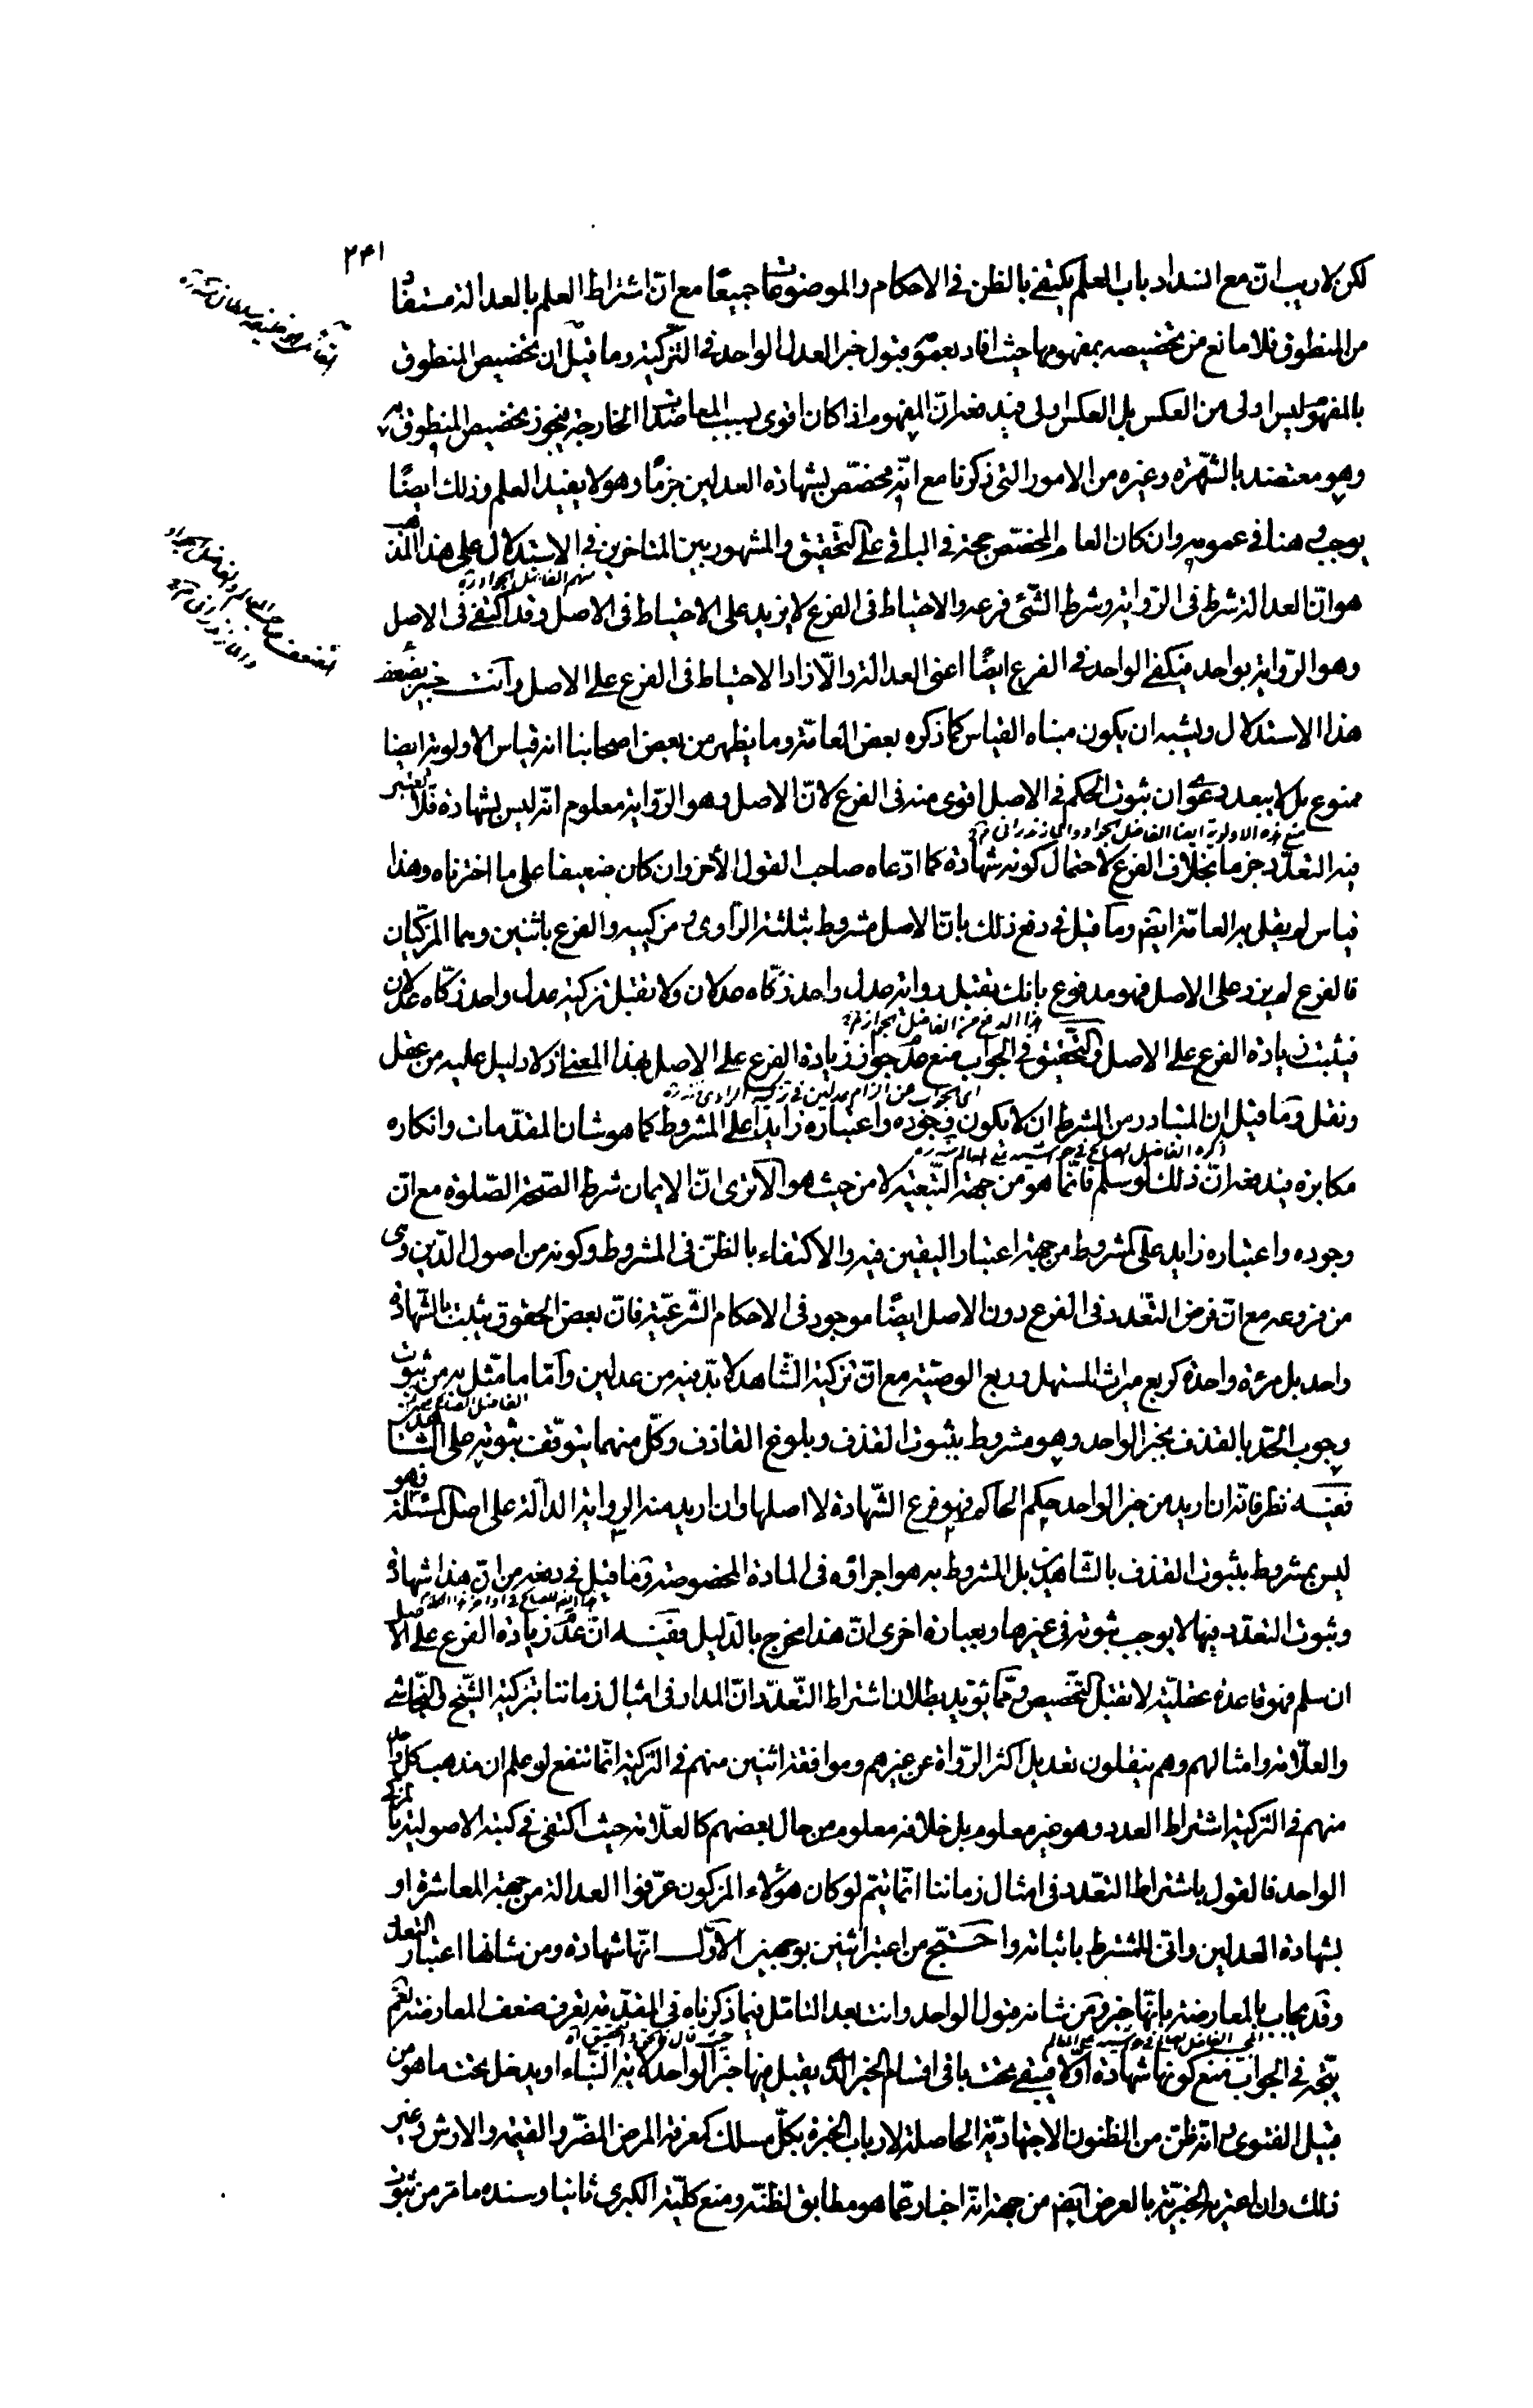 ۲۴۱
لكن لا ريب ان مع انسداد باب العلم يكتفى بالظن فى الاحكام والموضوعات جميعًا مع ان اشتراط العلم بالعدالة مستفاد
من المنطوق فلا مانع من تخصيصه بمفهومها حيث افاد بعمومه قبول خبر العدل الواحد فى التزكية وما قيل ان تخصيص المنطوق
بالمفهوم ليس اولى من العكس بل العكس اولى فيدفعه ان المفهوم اذا كان اقوى بسبب المعاضدات الخارجة يجوز تخصيص المنطوق به
وهو معتضد بالشهرة وغيره من الامور التى ذكرنا مع انه مخصّص بشهادة العدلين جزمًا وهو لا يفيد العلم وذلك ايضًا
يوجب وهنا فى عمومه وان كان العام المخصّص حجة فى الباقى على التحقيق والمشهور بين المتاخرين فى الاستدلال على هذا المذهب
منهم الفاضل الجواد ره
هو ان العدالة شرط فى الرواية وشرط الشئ فرعه والاحتياط فى الفرع لا يزيد على الاحتياط فى الاصل وقد اكتفى فى الاصل
وهو الرواية بواحد فيكفى الواحد فى الفرع ايضًا اعنى العدالة والّا زاد الاحتياط فى الفرع على الاصل وانت خبير بضعف
هذا الاستدلال ويشبه ان يكون مبناه القياس كما ذكره بعض العامّة وما يظهر من بعض اصحابنا انه قياس الاولوية ايضا
ممنوع بل لا يبعد دعوى ان ثبوت الحكم فى الاصل اقوى منه فى الفرع لانّ الاصل وهو الرواية معلوم انه ليس بشهادة فلا يعتبر
منع هذه الاولوية ايضا الفاضل الجواد والمازندرانى
فيه التعدّد جزما بخلاف الفرع لاحتمال كونه شهادة كما ادّعاه صاحب القول الاخر وان كان ضعيفا على ما اخترناه وهذا
قياس لم يقل به العامّة ايضًا وما قيل فى دفع ذلك بان الاصل مشروط بثلثة الراوى ومزكييه والفرع باثنين وهما المزكيان
فالفرع لم يزد على الاصل فهو مدفوع بانك تقبل رواية عدل واحد زكّاه عدلان ولا تقبل تزكية عدل واحد زكّاه عدلان
هذا الدفع من الفاضل الجواد ره
فيثبت زيادة الفرع على الاصل فالتحقيق فى الجواب منع عدم جواز زيادة الفرع على الاصل بهذا المعنى اذ لا دليل عليه من عقل
اى الجواب عن الزام عدلين فى تزكية الراوى منه ره
ونقل وما قيل ان المتبادر من الشرط ان لا يكون وجوده واعتباره زايدا على المشروط كما هو شان المقدّمات وانكاره
ذكره الفاضل الصالح فى حاشيته على المعالم منه ره
مكابرة فيدفعه انّ ذلك لو سلم فانّما هو من جهة التّبعيّة لا من حيث هو الا ترى انّ الايمان شرط الصّحة الصّلوة مع ان
وجوده واعتباره زايد على المشروط من جهة اعتبار اليقين فيه والاكتفاء بالظنّ فى المشروط وكونه من اصول الدّين وهى
من فروعه مع ان فرض التعدد فى الفرع دون الاصل ايضًا موجود فى الاحكام الشّرعيّة فانّ بعض الحقوق يثبت بشهادة
واحد بل مرئة واحدة كربع ميراث المستهل وربع الوصيّة مع انّ تزكية الشّاهد لا بدّ فيه من عدلين وامّا ما مثّل به من ثبوت
وجوب الحد بالقذف بخبر الواحد وهو مشروط بثبوت القذف وبلوغ القاذف وكل منهما يتوقّف ثبوته على الشاهدين
ففيه نظر فانه ان اريد من خبر الواحد حكم الحاكم فهو فرع الشّهادة لا اصلها وان اريد منه الرواية الدالّة على اصل المسئلة فهو
ليس بمشروط بثبوت القذف بالشّاهدين بل المشروط به هو اجراؤه فى المادة المخصوصة وما قيل فى دفعه من انّ هذا شهادة
وثبوت التعدّد فيها لا يوجب ثبوته فى غيرها وبعبارة اخرى انّ هذا مخرج بالدّليل ففيه انّ عدم زيادة الفرع على الاصل
ان سلم فهو قاعدة عقليّة لا تقبل التخصيص وممّا يؤيد بطلان اشتراط التّعدّد انّ المدار فى امثال زماننا بتزكية الشّيخ والنّجاشى
والعلّامة وامثالهم وهم ينقلون تعديل اكثر الرّواة عن غيرهم وموافقة اثنين منهم فى التزكية انّما تنفع لو علم ان مذهب كل واحد
منهم فى التزكية اشتراط العدد وهو غير معلوم بل خلافه معلوم من حال بعضهم كالعلّامة حيث اكتفى فى كتبه الاصولية بالمزكى
الواحد فالقول باشتراط التعّدد فى امثال زماننا انّما يتم لو كان هؤلاء المزكون عرّفوا العدالة من جهة المعاشرة او
بشهادة العدلين وانّى للمشترط باثباته واحتج من اعتبر اثنين بوجهين الاوّل انّها شهادة ومن شانها اعتبار التعدد
وقد يجاب بالمعارضة بانّها خبر ومن شانه قبول الواحد وانت بعد التامّل فيما ذكرناه فى المقدّمة تعرف ضعف المعارضة نعم
المجيب الفاضل الصالح فى حاشيته على المعالم
يتّجه فى الجواب منع كونها شهادة اوّلا فيبقى تحت باقى اقسام الخبر الّذى يقبل فيها خبر الواحد لاية النّباء او يدخل تحت ما هو من
قبيل الفتوى وانّه ظن من الظنون الاجتهاديّة الحاصلة لارباب الخبرة بكلّ مسلك كمعرفة المرض المضرّ والقيمة والارش وغير
ذلك وان اعتبر الخبرية بالعرض ايضًا من جهة انّه اخبار عمّا هو مطابق لظنّه ومنع كليّة الكبرى ثانيا وسنده ما مر من ثبوت